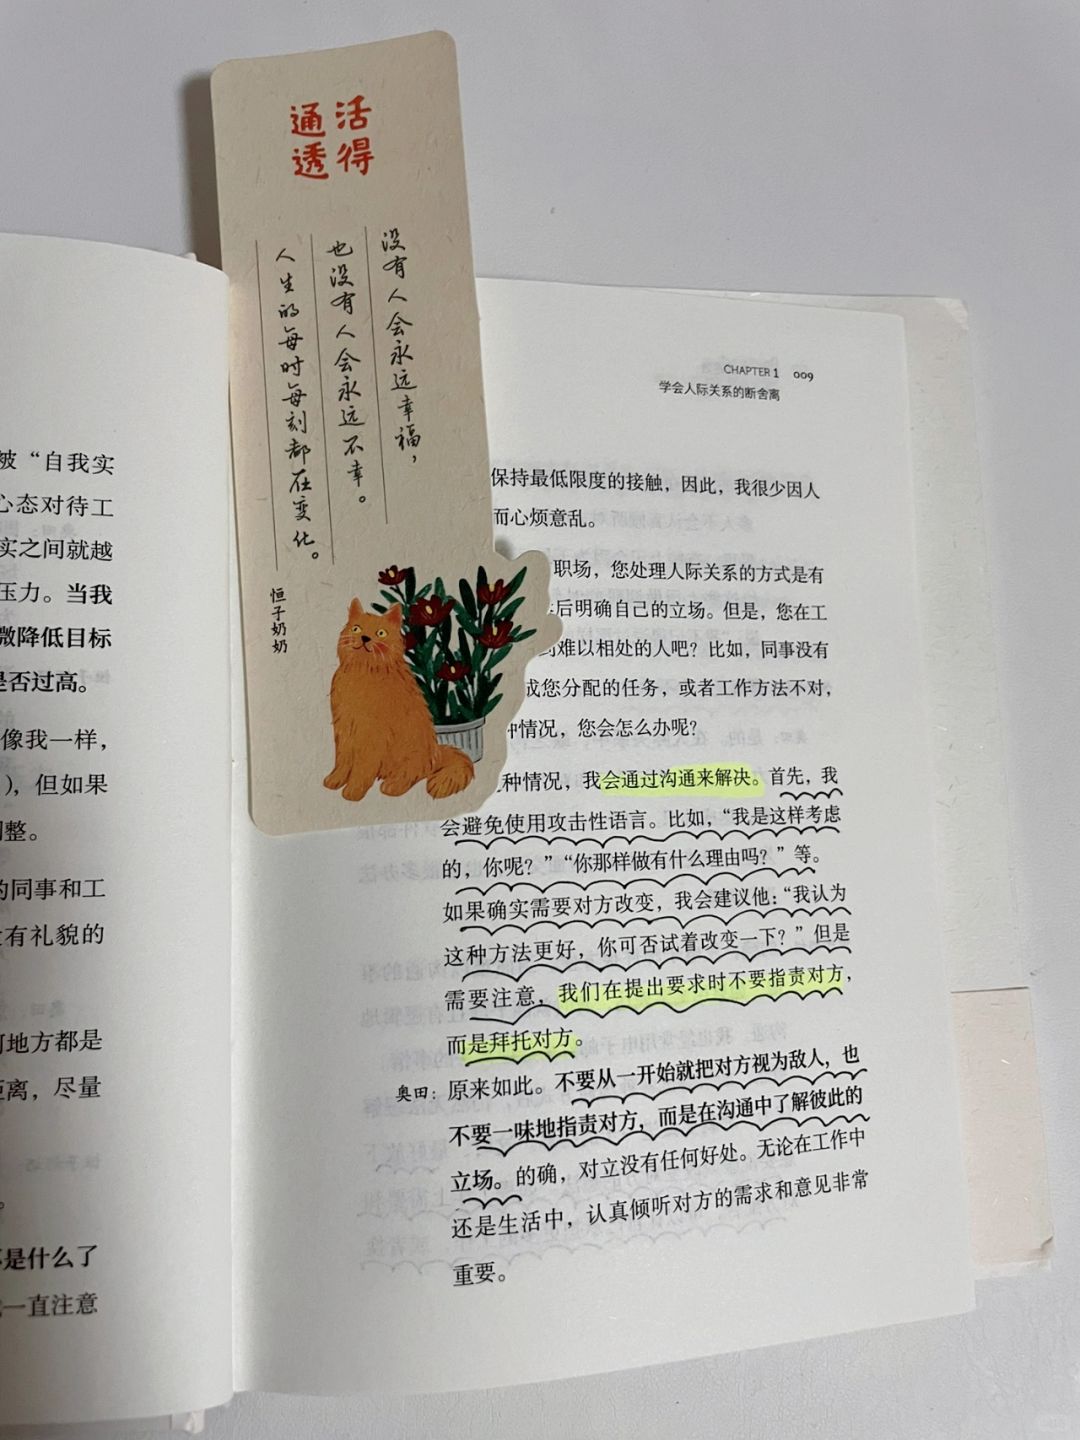 活得
通透
没有人会永远幸福，
也没有人会永远不幸。
人生的每时每刻都在变化。
恒子奶奶
被“自我实
心态对待工
实之间就越
压力。当我
微降低目标
是否过高。
像我一样，
），但如果
调整。
的同事和工
没有礼貌的
何地方都是
距离，尽量
。
都是什么了
一直注意
CHAPTER 1 009
学会人际关系的断舍离
保持最低限度的接触，因此，我很少因人
而心烦意乱。
职场，您处理人际关系的方式是有
后明确自己的立场。但是，您在工
到难以相处的人吧？比如，同事没有
成您分配的任务，或者工作方法不对，
种情况，您会怎么办呢？
这种情况，我会通过沟通来解决。首先，我
会避免使用攻击性语言。比如，“我是这样考虑
的，你呢？”“你那样做有什么理由吗？”等。
如果确实需要对方改变，我会建议他：“我认为
这种方法更好，你可否试着改变一下？”但是
需要注意，我们在提出要求时不要指责对方，
而是拜托对方。
奥田：原来如此。不要从一开始就把对方视为敌人，也
不要一味地指责对方，而是在沟通中了解彼此的
立场。的确，对立没有任何好处。无论在工作中
还是生活中，认真倾听对方的需求和意见非常
重要。